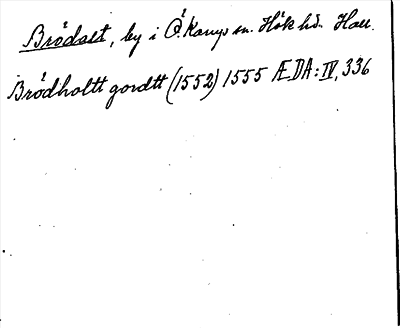 Brödalt, by i Ö. Karups sn. Höks hd. Hall.
Brödholtt gordtt (1552) 1555 ÆDA: IV, 336